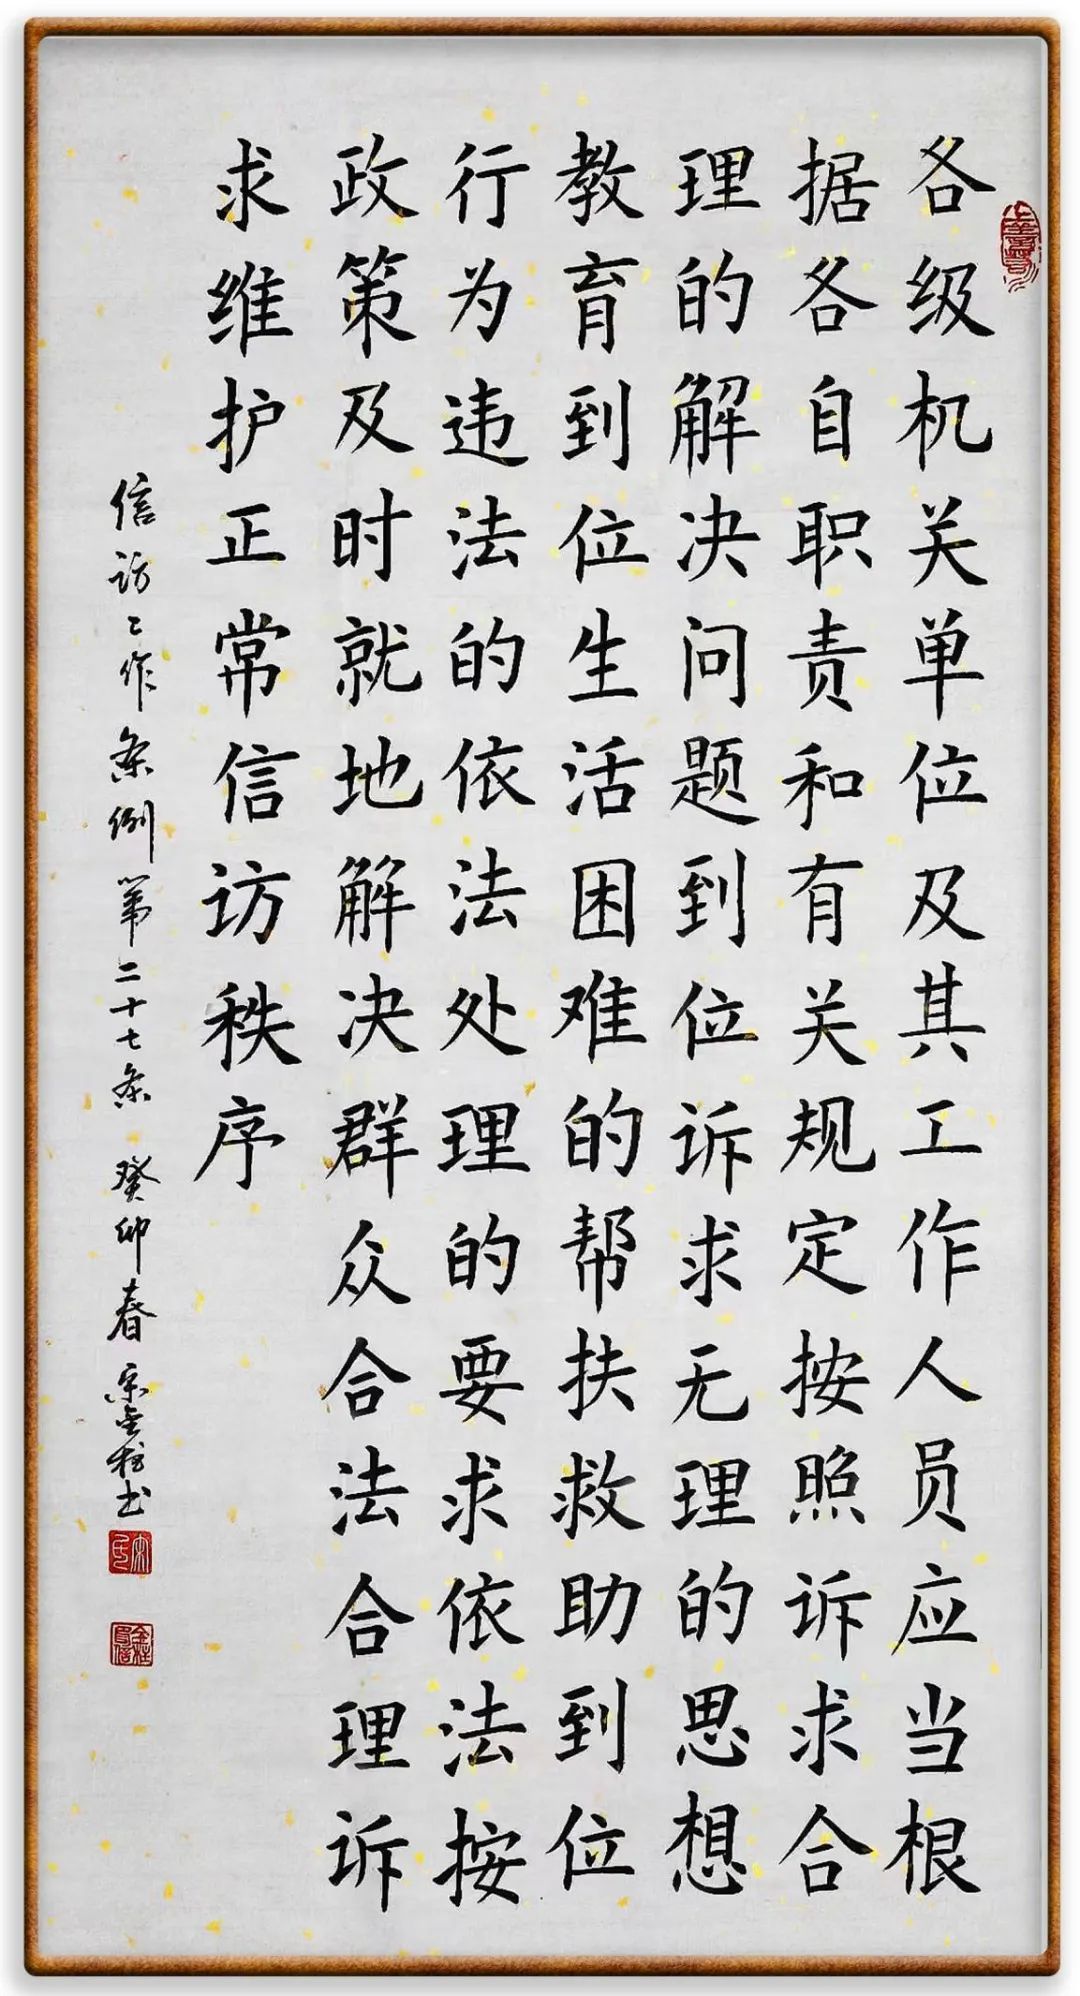 各级机关单位及其工作人员应当根
据各自职责和有关规定按照诉求合
理的解决问题到位诉求无理的思想
教育到位生活困难的帮扶救助到位
行为违法的依法处理的要求依法按
政策及时就地解决群众合法合理诉
求维护正常信访秩序
信访工作条例第二十七条 癸卯春 宗金柱书